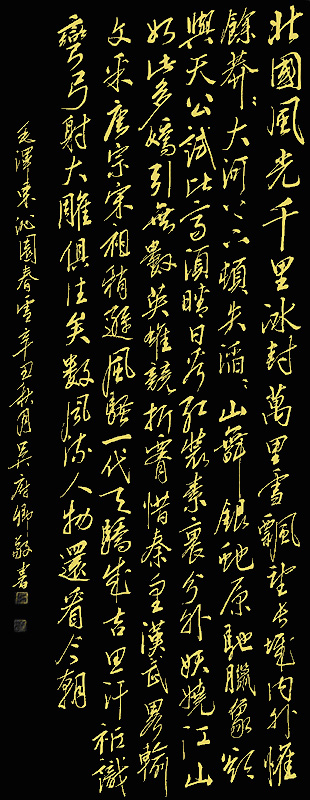 北國風光千里冰封萬里雪飄望長城內外惟
餘莽〻大河上下頓失滔〻山舞銀蛇原馳臘象欲
與天公試比高須晴日看紅裝素裹分外妖嬈江山
如此多嬌引無數英雄競折腰惜秦皇漢武畧輸
文采唐宗宋祖稍遜風騷一代天驕成吉思汗祗識
彎弓射大雕俱往矣數風流人物還看今朝
毛澤東沁園春雪辛丑秋月吳府卿敬書